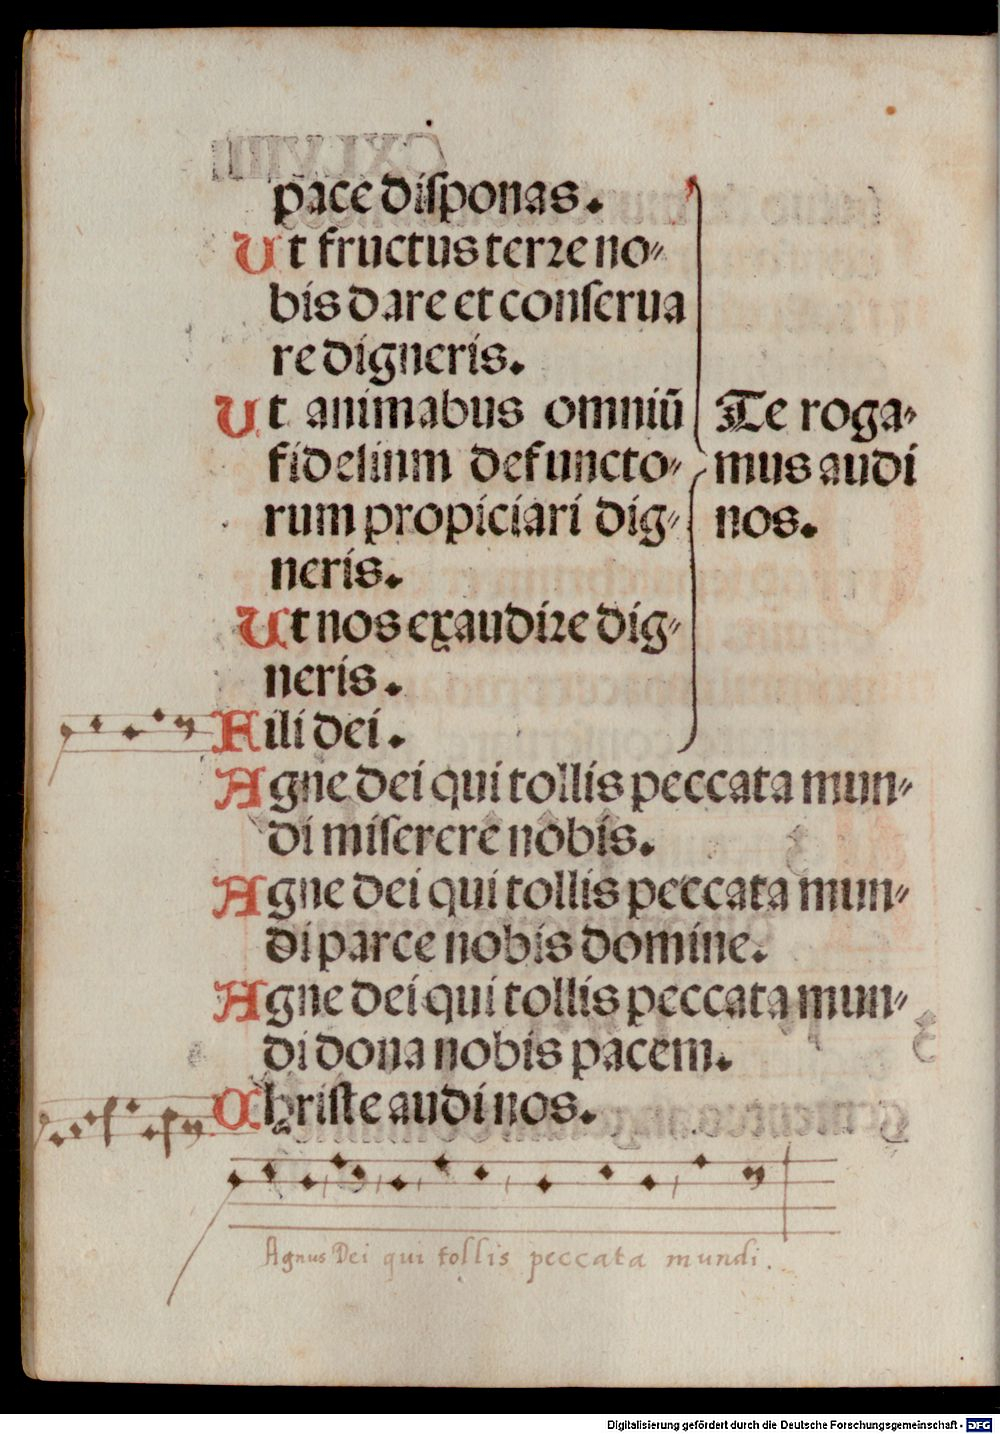 CXLVIIII
pace disponas.
Ut fructus terre no-
bis dare et conserua
re digneris.
Ut animabus omniū
fidelium defuncto-
rum propiciari dig-
neris.
Ut nos exaudire dig-
neris.
Te roga-
mus audi
nos.
Fili dei.
Agne dei qui tollis peccata mun-
di miserere nobis.
Agne dei qui tollis peccata mun-
di parce nobis domine.
Agne dei qui tollis peccata mun-
di dona nobis pacem.
Christe audi nos.
Agnus Dei qui tollis peccata mundi.
Digitalisierung gefördert durch die Deutsche Forschungsgemeinschaft - DFG